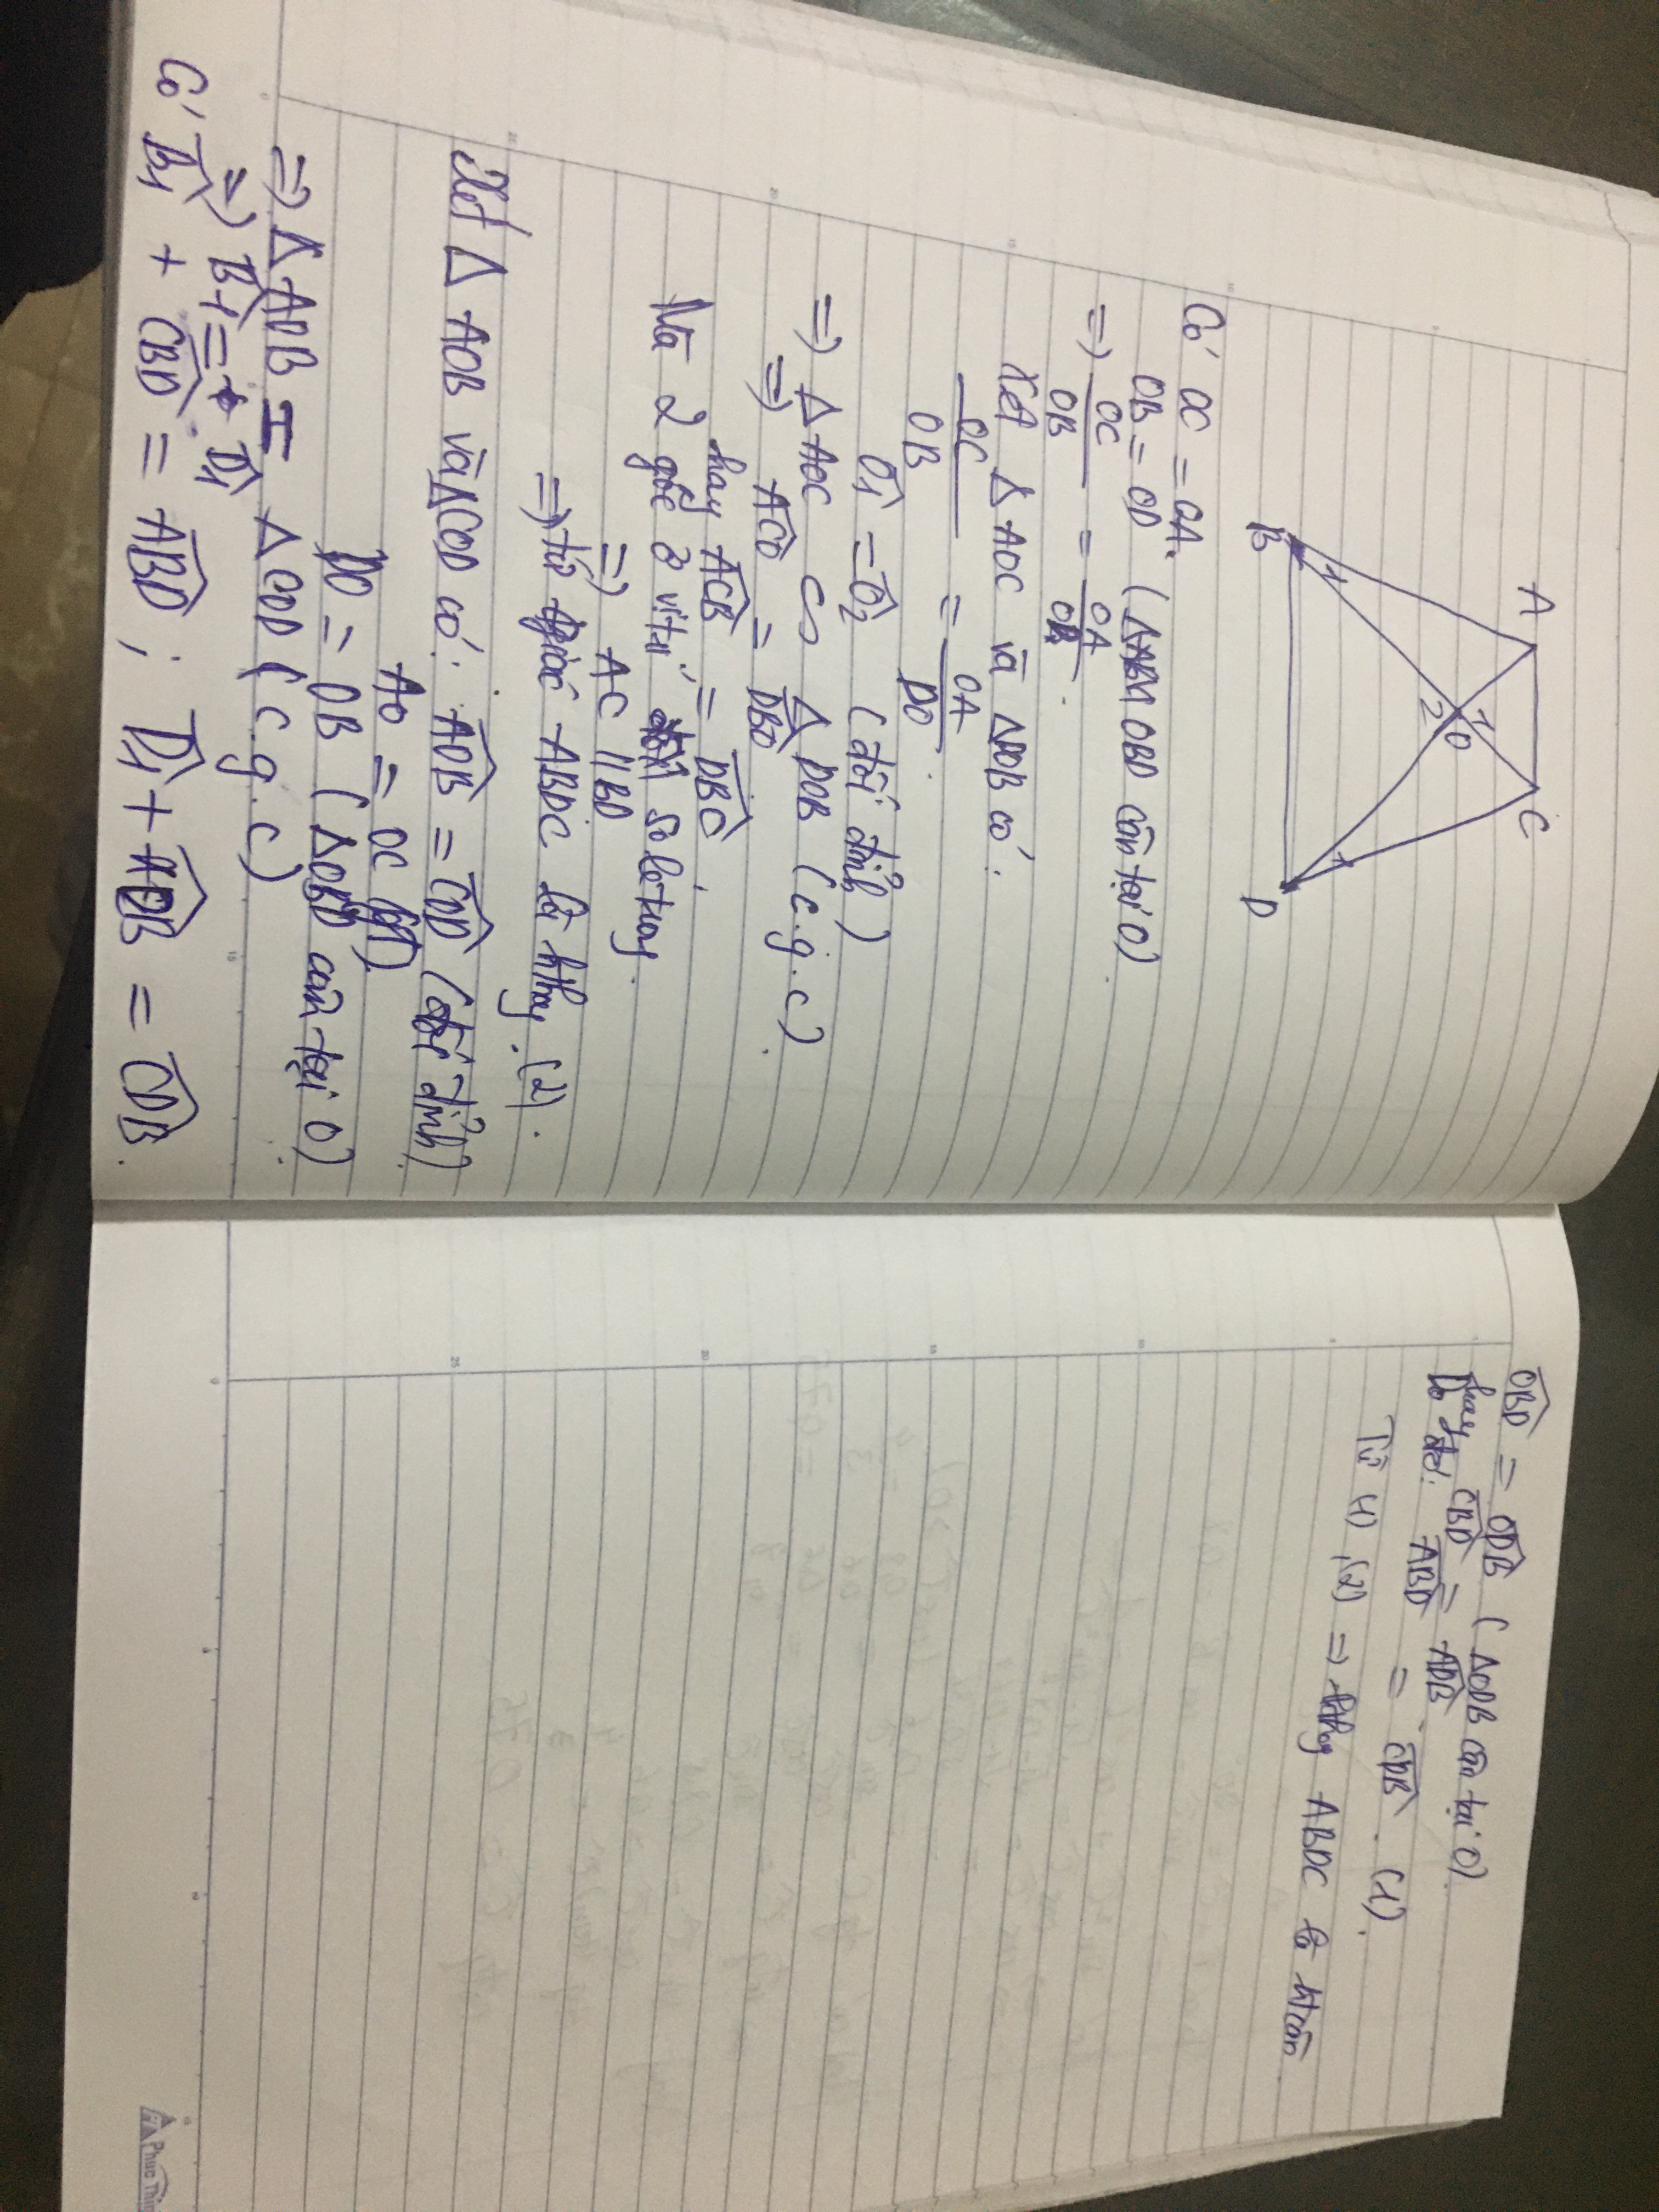 A
C
1
O
2
B
1
1
D
Có OC = OA.
OB = OD (ΔOBD cân tại O)
=> OC/OB = OA/OD.
Xét ΔAOC và ΔDOB có:
OC/OB = OA/DO.
Ô1 = Ô2 (đối đỉnh)
=> ΔAOC ∽ ΔDOB (c.g.c)
=> ACO = DBO
hay ACB = DBC
Mà 2 góc ở vị trí so le trong
=> AC // BD
=> tứ giác ABDC là hthag. (2).
Xét ΔAOB và ΔCOD có: AOB = COD (đối đỉnh)
AO = OC (gt).
DO = OB (ΔOBD cân tại O)
=> ΔAOB = ΔCOD (c.g.c)
=> B1 = D1
Có B1 + CBD = ABD ; D1 + ADB = CDB.
OBD = ODB (ΔODB cân tại O)
hay CBD = ADB
Do đó: ABD = CDB. (1).
Từ (1), (2) => hthag ABDC là htcân
Phuc Thin